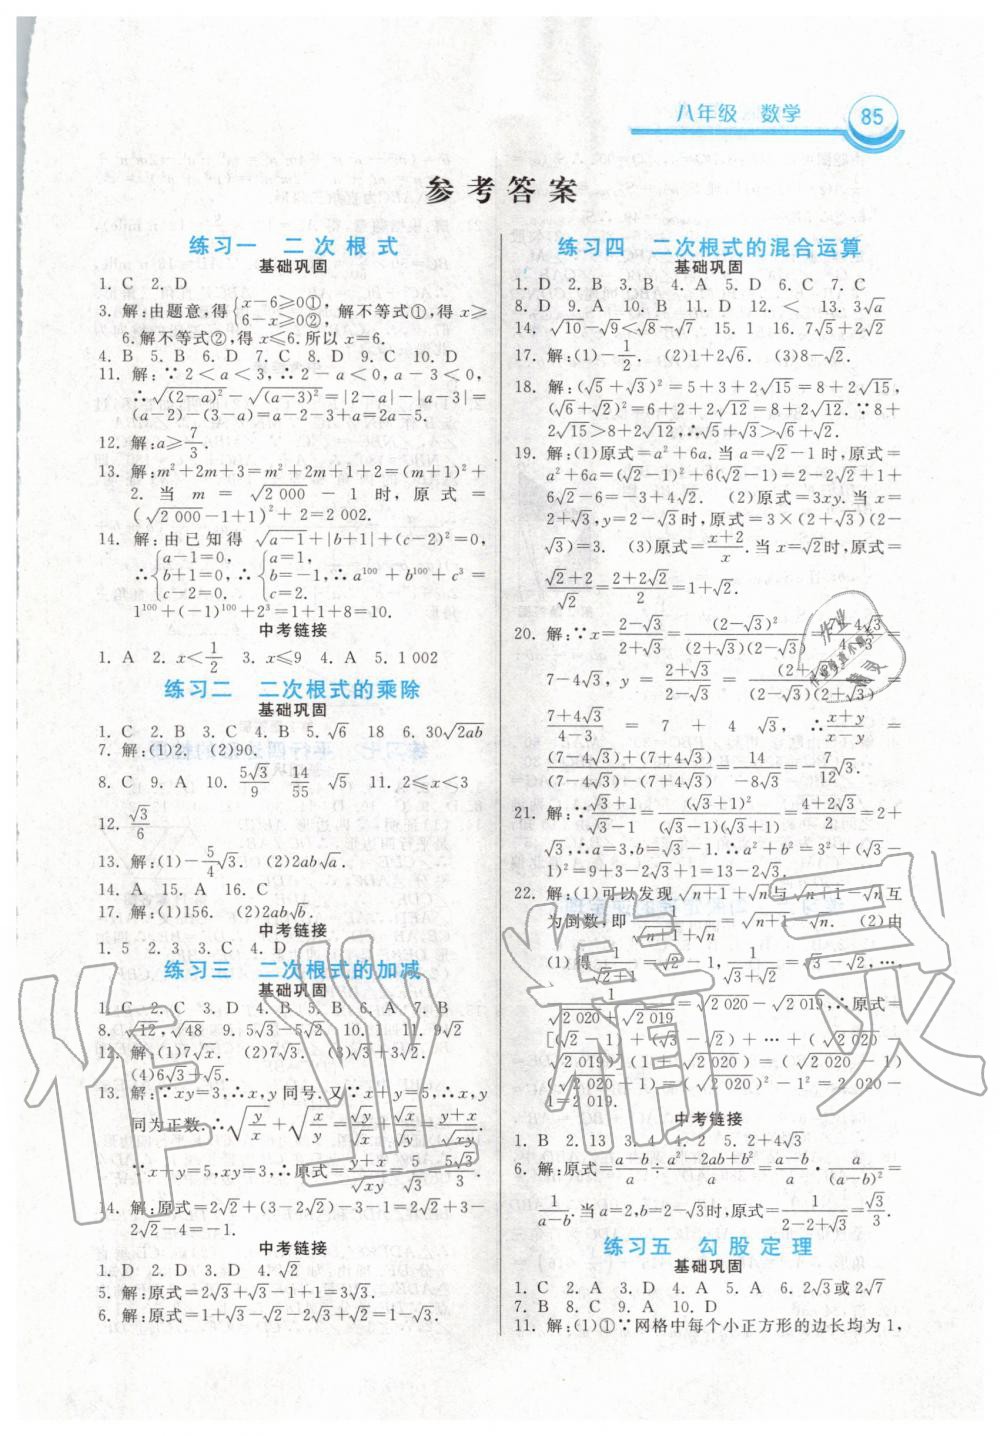 八年级 数学 85
参考答案
练习一 二次根式
基础巩固
1. C 2. D
3. 解:由题意,得{x-6≥0①, 6-x≥0②, 解不等式①,得 x≥
6.解不等式②,得 x≤6.所以 x=6.
4. B 5. B 6. D 7. C 8. D 9. C 10. D
11. 解:∵2<a<3,∴2-a<0,a-3<0,
∴√(2-a)²-√(a-3)²=|2-a|-|a-3|=
(a-2)-(3-a)=a-2-3+a=2a-5.
12. 解:a≥7/3.
13. 解:m²+2m+3=m²+2m+1+2=(m+1)²+
2. 当 m=√2 000-1 时,原式=
(√2 000-1+1)²+2=2 002.
14. 解:由已知得 √a-1+|b+1|+(c-2)²=0,
∴{a-1=0, b+1=0, c-2=0. ∴{a=1, b=-1, c=2. ∴a¹⁰⁰+b¹⁰⁰+c³=
1¹⁰⁰+(-1)¹⁰⁰+2³=1+1+8=10.
中考链接
1. A 2. x<1/2 3. x≤9 4. A 5. 1 002
练习二 二次根式的乘除
基础巩固
1. C 2. B 3. C 4. B 5. √6 18 6. 30√2ab
7. 解:(1)2. (2)90.
8. C 9. A 10. 5√3/9 √14/55 √55 11. 2≤x<3
12. √3/6
13. 解:(1)-5/4√3. (2)2ab√a.
14. A 15. A 16. C
17. 解:(1)156. (2)2ab√b.
中考链接
1. 5 2. 3 3. C 4. D
练习三 二次根式的加减
基础巩固
1. C 2. C 3. D 4. B 5. B 6. A 7. B
8. √12,√48 9. 5√3-5√2 10. 1 11. 9√2
12. 解:(1)7√x. (2)7√2. (3)√3+3√2.
(4)6√3+√5.
13. 解:∵xy=3,∴x,y同号.又∵x+y=5,∴x,y
同为正数.∴√y/x+√x/y=√y/√x+√x/√y=y+x/√xy.
∵x+y=5,xy=3,∴原式=y+x/√xy=5/√3=5√3/3.
14. 解:原式=2√2+(3-2√2)-3-1=2√2+3-
2√2-4=-1.
中考链接
1. D 2. D 3. D 4. √2
5. 解:原式=2√3+√3-1+1=3√3.
6. 解:原式=1+√3-√2-2√3+√2=1-√3.
练习四 二次根式的混合运算
基础巩固
1. D 2. B 3. B 4. A 5. D 6. C 7. C
8. D 9. A 10. B 11. D 12. < 13. 3√a
14. √10-√9<√8-√7 15. 1 16. 7√5+2√2
17. 解:(1)-1/2. (2)1+2√6. (3)8-√2.
18. 解:(√5+√3)²=5+3+2√15=8+2√15,
(√6+√2)²=6+2+2√12=8+2√12.∵8+
2√15>8+2√12,∴√5+√3>√6+√2.
19. 解:(1)原式=a²+6a.当 a=√2-1时,原式=
a²+6a=(√2-1)²+6(√2-1)=2-2√2+1+
6√2-6=-3+4√2. (2)原式=3xy.当 x=
2+√3,y=2-√3时,原式=3×(2+√3)(2-
√3)=3. (3)原式=x+2/x.当 x=√2时,原式=
√2+2/√2=2+2√2/2=1+√2.
20. 解:∵x=2-√3/2+√3=(2-√3)²/(2+√3)(2-√3)=
7-4√3,y=2+√3/2-√3=(2+√3)²/(2-√3)(2+√3)=
7+4√3/4-3=7+4√3,∴x+y/x-y=
(7-4√3)+(7+4√3)/(7-4√3)-(7+4√3)=14/-8√3=-7/12√3.
21. 解:∵√3+1/√3-1=(√3+1)²/(√3-1)(√3+1)=4+2√3/2=2+
√3,∴a=3,b=√3-1.∴a²+b²=3²+(√3-
1)²=9+3-2√3+1=13-2√3.
22. 解:(1)可以发现√n+1+√n与√n+1-√n互
为倒数,即1/√n+1+√n=√n+1-√n. (2)由
(1)得1/√2+1=√2-1,1/√3+√2=√3-√2,…,
1/√2 020+√2 019=√2 020-√2 019,∴原式=
[(√2-1)+(√3-√2)+…+(√2 020-
√2 019)](√2 020+1)=
(√2 020-1)(√2 020+1)=(√2 020)²-1²=2 020-
1=2 019.
中考链接
1. B 2. 13 3. 4 4. 2 5. 2+4√3
6. 解:原式=a-b/a÷a²-2ab+b²/a=a-b/a·a/(a-b)²=
1/a-b.当 a=2,b=2-√3时,原式=1/2-2+√3=√3/3.
练习五 勾股定理
基础巩固
1. C 2. A 3. D 4. A 5. A 6. 2√3或2√7
7. B 8. C 9. A 10. D
11. 解:(1)①∵网格中每个小正方形的边长均为1,
作业精灵